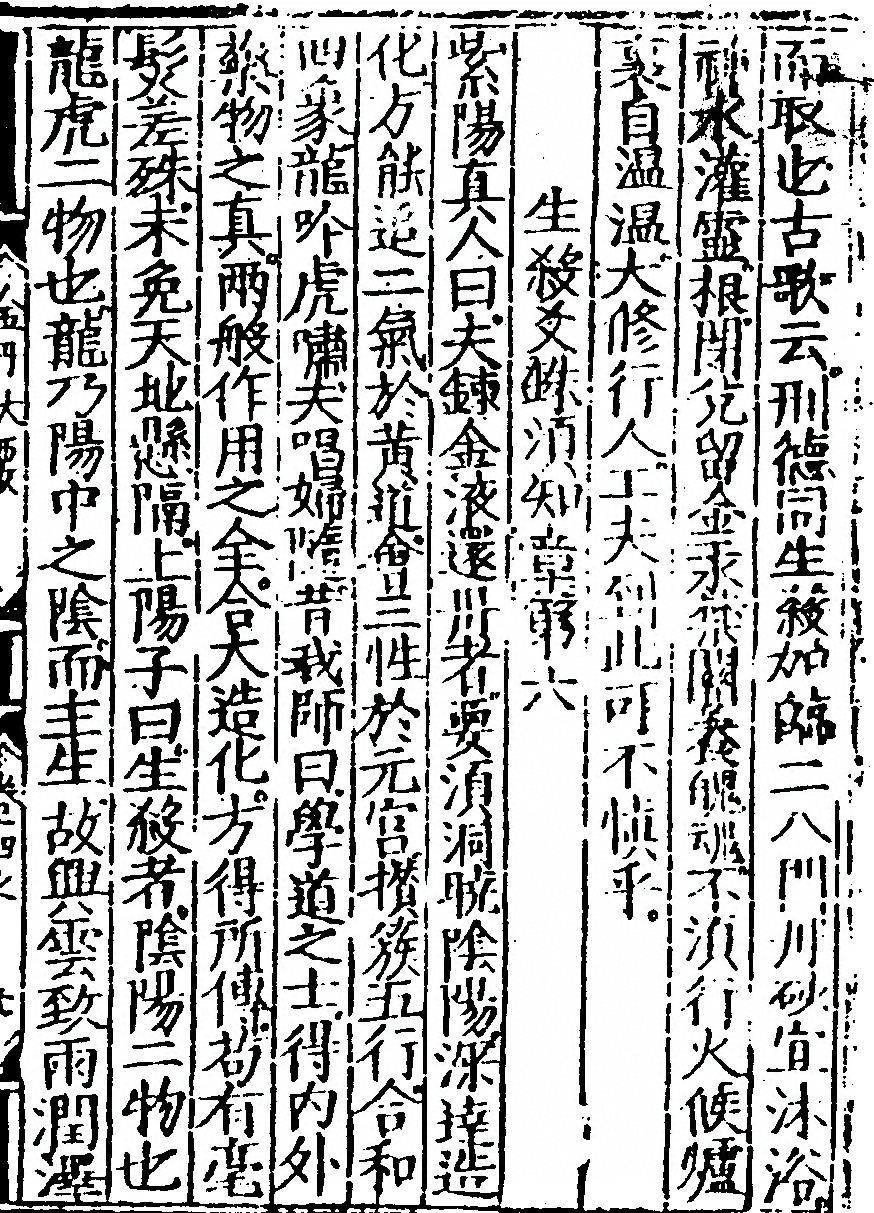 而取也古歌云刑德同生殺加臨二八門丹砂宜沐浴
神水灌靈根閉兌留金汞飛關養魄魂不須行火候爐
裏自温温大修行人工夫到此可不慎乎
生殺爻銖須知章第六
紫陽真人曰夫鍊金液還丹者要須洞曉陰陽深達造
化方能追二氣於黄道會三性於元宫攢簇五行合和
四象龍吟虎嘯夫唱婦隨昔我師曰學道之士得内外
藥物之真兩般作用之全合大造化方得所傳茍有毫
髮差殊未免天地懸隔上陽子曰生殺者陰陽二物也
龍虎二物也龍乃陽中之陰而主生故興雲致雨潤澤